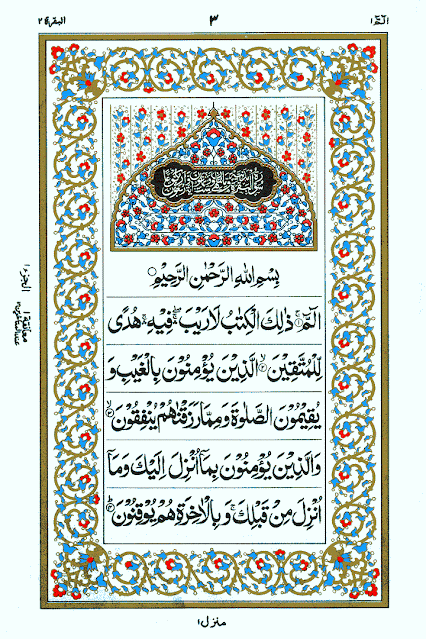 الٓمّٓ ١
٣
البقرة ٢
بِسْمِ اللّٰهِ الرَّحْمٰنِ الرَّحِيْمِ
الٓمّٓ ۚ ذٰلِكَ الْكِتٰبُ لَا رَيْبَ ۛ فِيْهِ ۛ هُدًى
لِّلْمُتَّقِيْنَ ۙ الَّذِيْنَ يُؤْمِنُوْنَ بِالْغَيْبِ وَ
يُقِيْمُوْنَ الصَّلٰوةَ وَ مِمَّا رَزَقْنٰهُمْ يُنْفِقُوْنَ ۙ
وَالَّذِيْنَ يُؤْمِنُوْنَ بِمَاۤ اُنْزِلَ اِلَيْكَ وَمَاۤ
اُنْزِلَ مِنْ قَبْلِكَ ۚ وَ بِالْاٰخِرَةِ هُمْ يُوْقِنُوْنَ ؕ
معانقة ١
الجزء ١
منزل ١